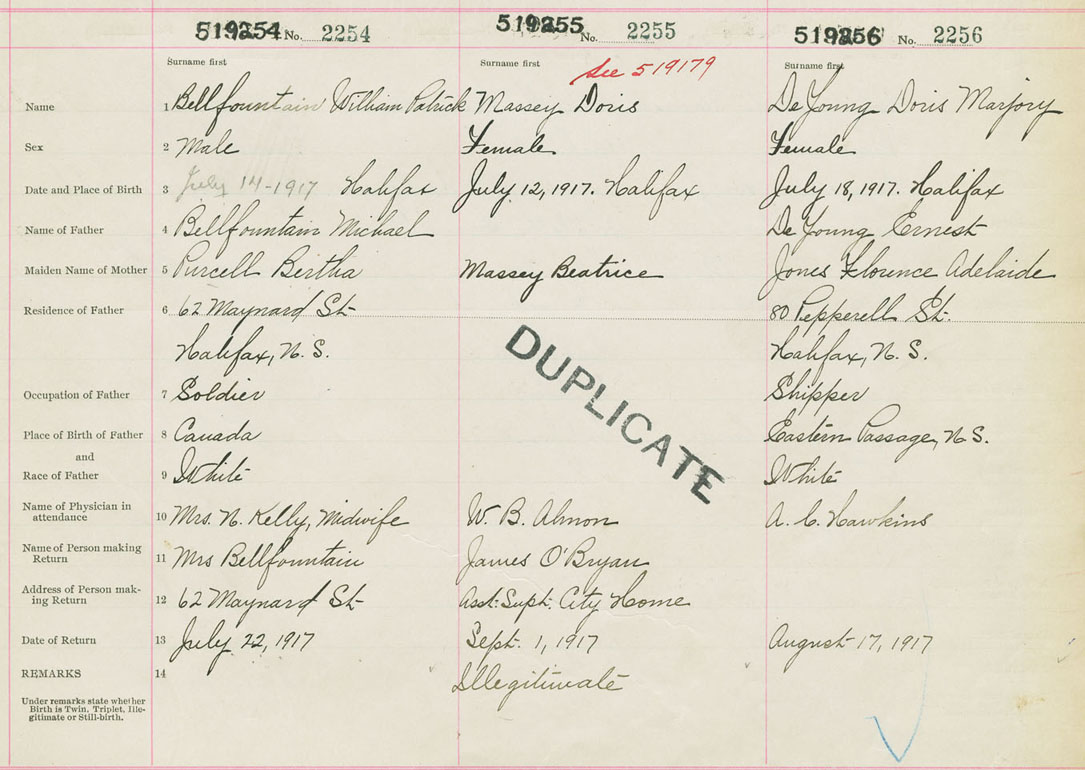 519254 No. 2254 519255 No. 2255 519256 No. 2256
Surname first Surname first See 519179 Surname first
Name 1 Bellfountain William Patrick Massey Doris De Young Doris Marjory
Sex 2 Male Female Female
Date and Place of Birth 3 July 14-1917 Halifax July 12, 1917. Halifax July 18, 1917. Halifax
Name of Father 4 Bellfountain Michael De Young Ernest
Maiden Name of Mother 5 Purcell Bertha Massey Beatrice Jones Florence Adelaide
Residence of Father 6 62 Maynard St. 80 Pepperell St.
Halifax, N. S. Halifax, N. S.
DUPLICATE
Occupation of Father 7 Soldier Shipper
Place of Birth of Father 8 Canada Eastern Passage, N. S.
and
Race of Father 9 White White
Name of Physician in
attendance 10 Mrs. N. Kelly, Midwife W. B. Almon A. C. Hawkins
Name of Person making
Return 11 Mrs Bellfountain James O'Bryan
Address of Person mak-
ing Return 12 62 Maynard St Asst. Supt. City Home
Date of Return 13 July 22, 1917 Sept. 1, 1917 August 17, 1917
REMARKS 14 Illegitimate
Under remarks state whether
Birth is Twin, Triplet, Ille-
gitimate or Still-birth.